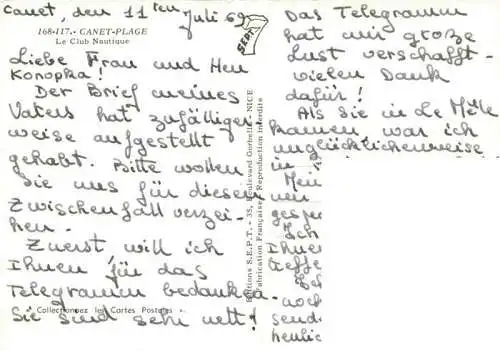 Canet, den 11ten Juli 69
168-117.- CANET-PLAGE
Le Club Nautique
Liebe Frau und Herr
Konopka!
Der Brief meines
Vaters hat zufälliger-
weise aufgestellt
gehabt. Bitte wollen
Sie uns für diesen
Zwischenfall verzei-
hen.
Zuerst will ich
Ihnen für das
Telegramm bedanken.
Sie sind sehr nett!
"Collectionnez les Cartes Postales"
SEPT
Editions S.E.P.T. - 35, Boulevard Gorbella - NICE
Fabrication Française - Reproduction interdite
Das Telegramm
hat mir große
Lust verschafft-
vielen Dank
dafür!
Als Sie in de
kamen, war ich
unglücklicherweise
in
Mein
von
gespr
Ich
Ihne
treffe
noch
send
herzlich